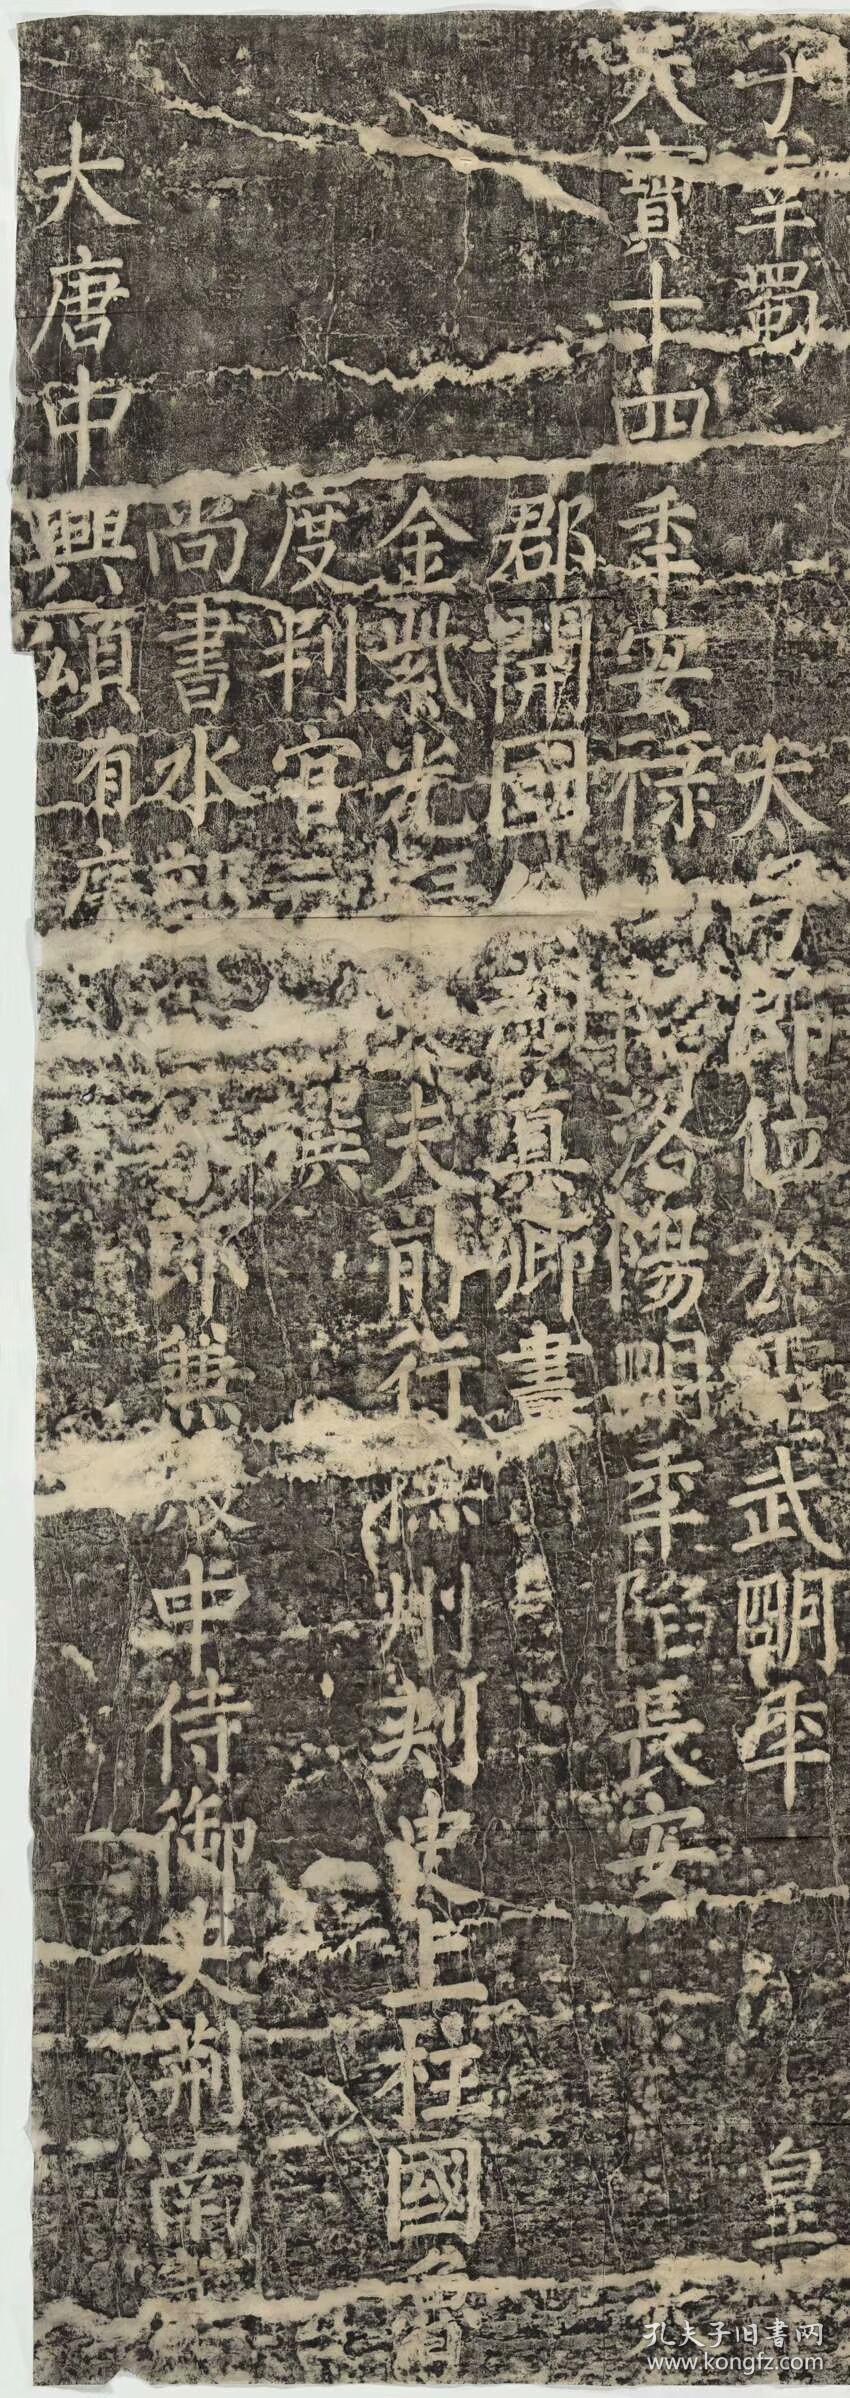 大唐中興頌有序
尚書水部外郎兼殿中侍御史荊南節
度判官元撰
金紫光祿大夫前行撫州刺史上柱國魯
郡開國公顏真卿書
天寶十四年安祿山陷洛陽明年陷長安天
子幸蜀太子即位於靈武明年皇
孔夫子旧書网
www.kongfz.com